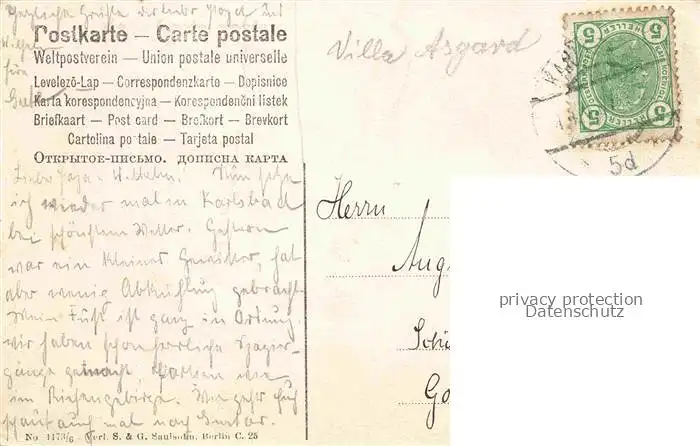 Herzliche Grüße
Postkarte — Carte postale
Weltpostverein — Union postale universelle
Levelező-Lap — Correspondenzkarte — Dopisnice
Karta korespondencyjna — Korespondenční lístek
Briefkaart — Post card — Brefkort — Brevkort
Cartolina postale — Tarjeta postal
Открытое-письмо. дописна карта
Villa Asgard
5 HELLER 5
5 5
5d
Wilhelm! Nun
ich wieder mal in Karlsbad
bei schönstem Wetter. Gestern
war ein kleines Gewitter, hat
aber wenig Abkühlung gebracht.
Mein Fuß ist ganz in Ordnung
wir haben schon herrliche Spazier-
gänge gemacht
im Riesengebirge. Wie geht's
schaut auch mal nach Gustav.
Herrn
Aug
Sch
Go
privacy protection
Datenschutz
No. 1173/6 Verl. S. & G. Saulsohn, Berlin C. 25